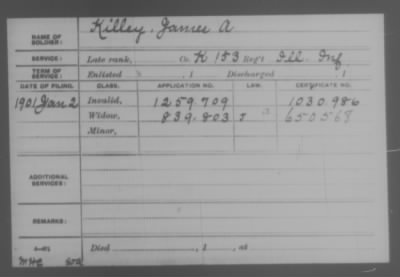 NAME OF SOLDIER: Killey, James A
SERVICE: Late rank, Co. K 153 Reg't Ill. Inf
TERM OF SERVICE: Enlisted , 1 Discharged , 1
DATE OF FILING. CLASS. APPLICATION NO. LAW. CERTIFICATE NO.
1901 Jan 2 Invalid, 1259.709 1030.986
Widow, 839.803 J 650568
Minor,
ADDITIONAL SERVICES:
REMARKS:
Died , 1 , at